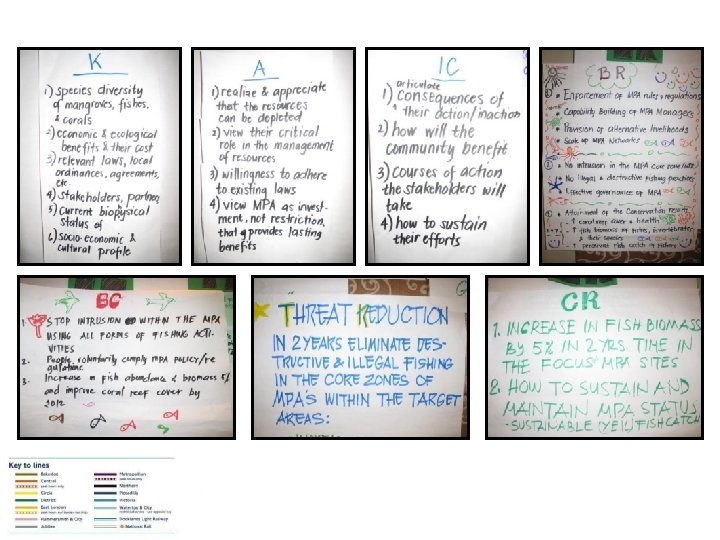 K
1) species diversity
of mangroves, fishes,
& corals
2) economic & ecological
benefits & their cost
3) relevant laws, local
ordinances, agreements,
etc.
4) stakeholders, partner
5) current biopysical
status of
6) socio-economic &
cultural profile
A
1) realize & appreciate
that the resources
can be depleted
2) view their critical
role in the management
of resources
3) willingness to adhere
to existing laws
4) view MPA as invest-
ment, not restriction,
that provides lasting
benefits
IC
articulate
1) consequences of
their action/inaction
2) how will the
community benefit
3) courses of action
the stakeholders will
take
4) how to sustain
their efforts
BR
Enforcement of MPA rules & regulations
Capability Building of MPA Managers
Provision of alternative livelihoods
MPA Networks
No intrusion in the MPA core zone
No illegal & destructive fishing practices
Effective governance of MPA
Attainment of the Conservation Results
coral reef cover & health
fish biomass of fishes, invertebrates
& their species
catch of fishery
BG
1. STOP INTRUSION WITHIN THE MPA
USING ALL FORMS OF FISHING ACTI-
VITIES
2. People voluntarily comply MPA policy/re
gulations
3. Increase in fish abundance & biomass 5%
and improve coral reef cover by
2012
THREAT REDUCTION
IN 2 YEARS ELIMINATE DES-
TRUCTIVE & ILLEGAL FISHING
IN THE CORE ZONES OF
MPA'S WITHIN THE TARGET
AREAS:
CR
1. INCREASE IN FISH BIOMASS
BY 5% IN 2 YRS. TIME IN
THE FOCUS MPA SITES
2. HOW TO SUSTAIN AND
MAINTAIN MPA STATUS
- SUSTAINABLE FISH CATCH
Key to lines
Bakerloo
Central
Circle
District
East London
Hammersmith & City
Jubilee
Metropolitan
Northern
Piccadilly
Victoria
Waterloo & City
Docklands Light Railway
National Rail